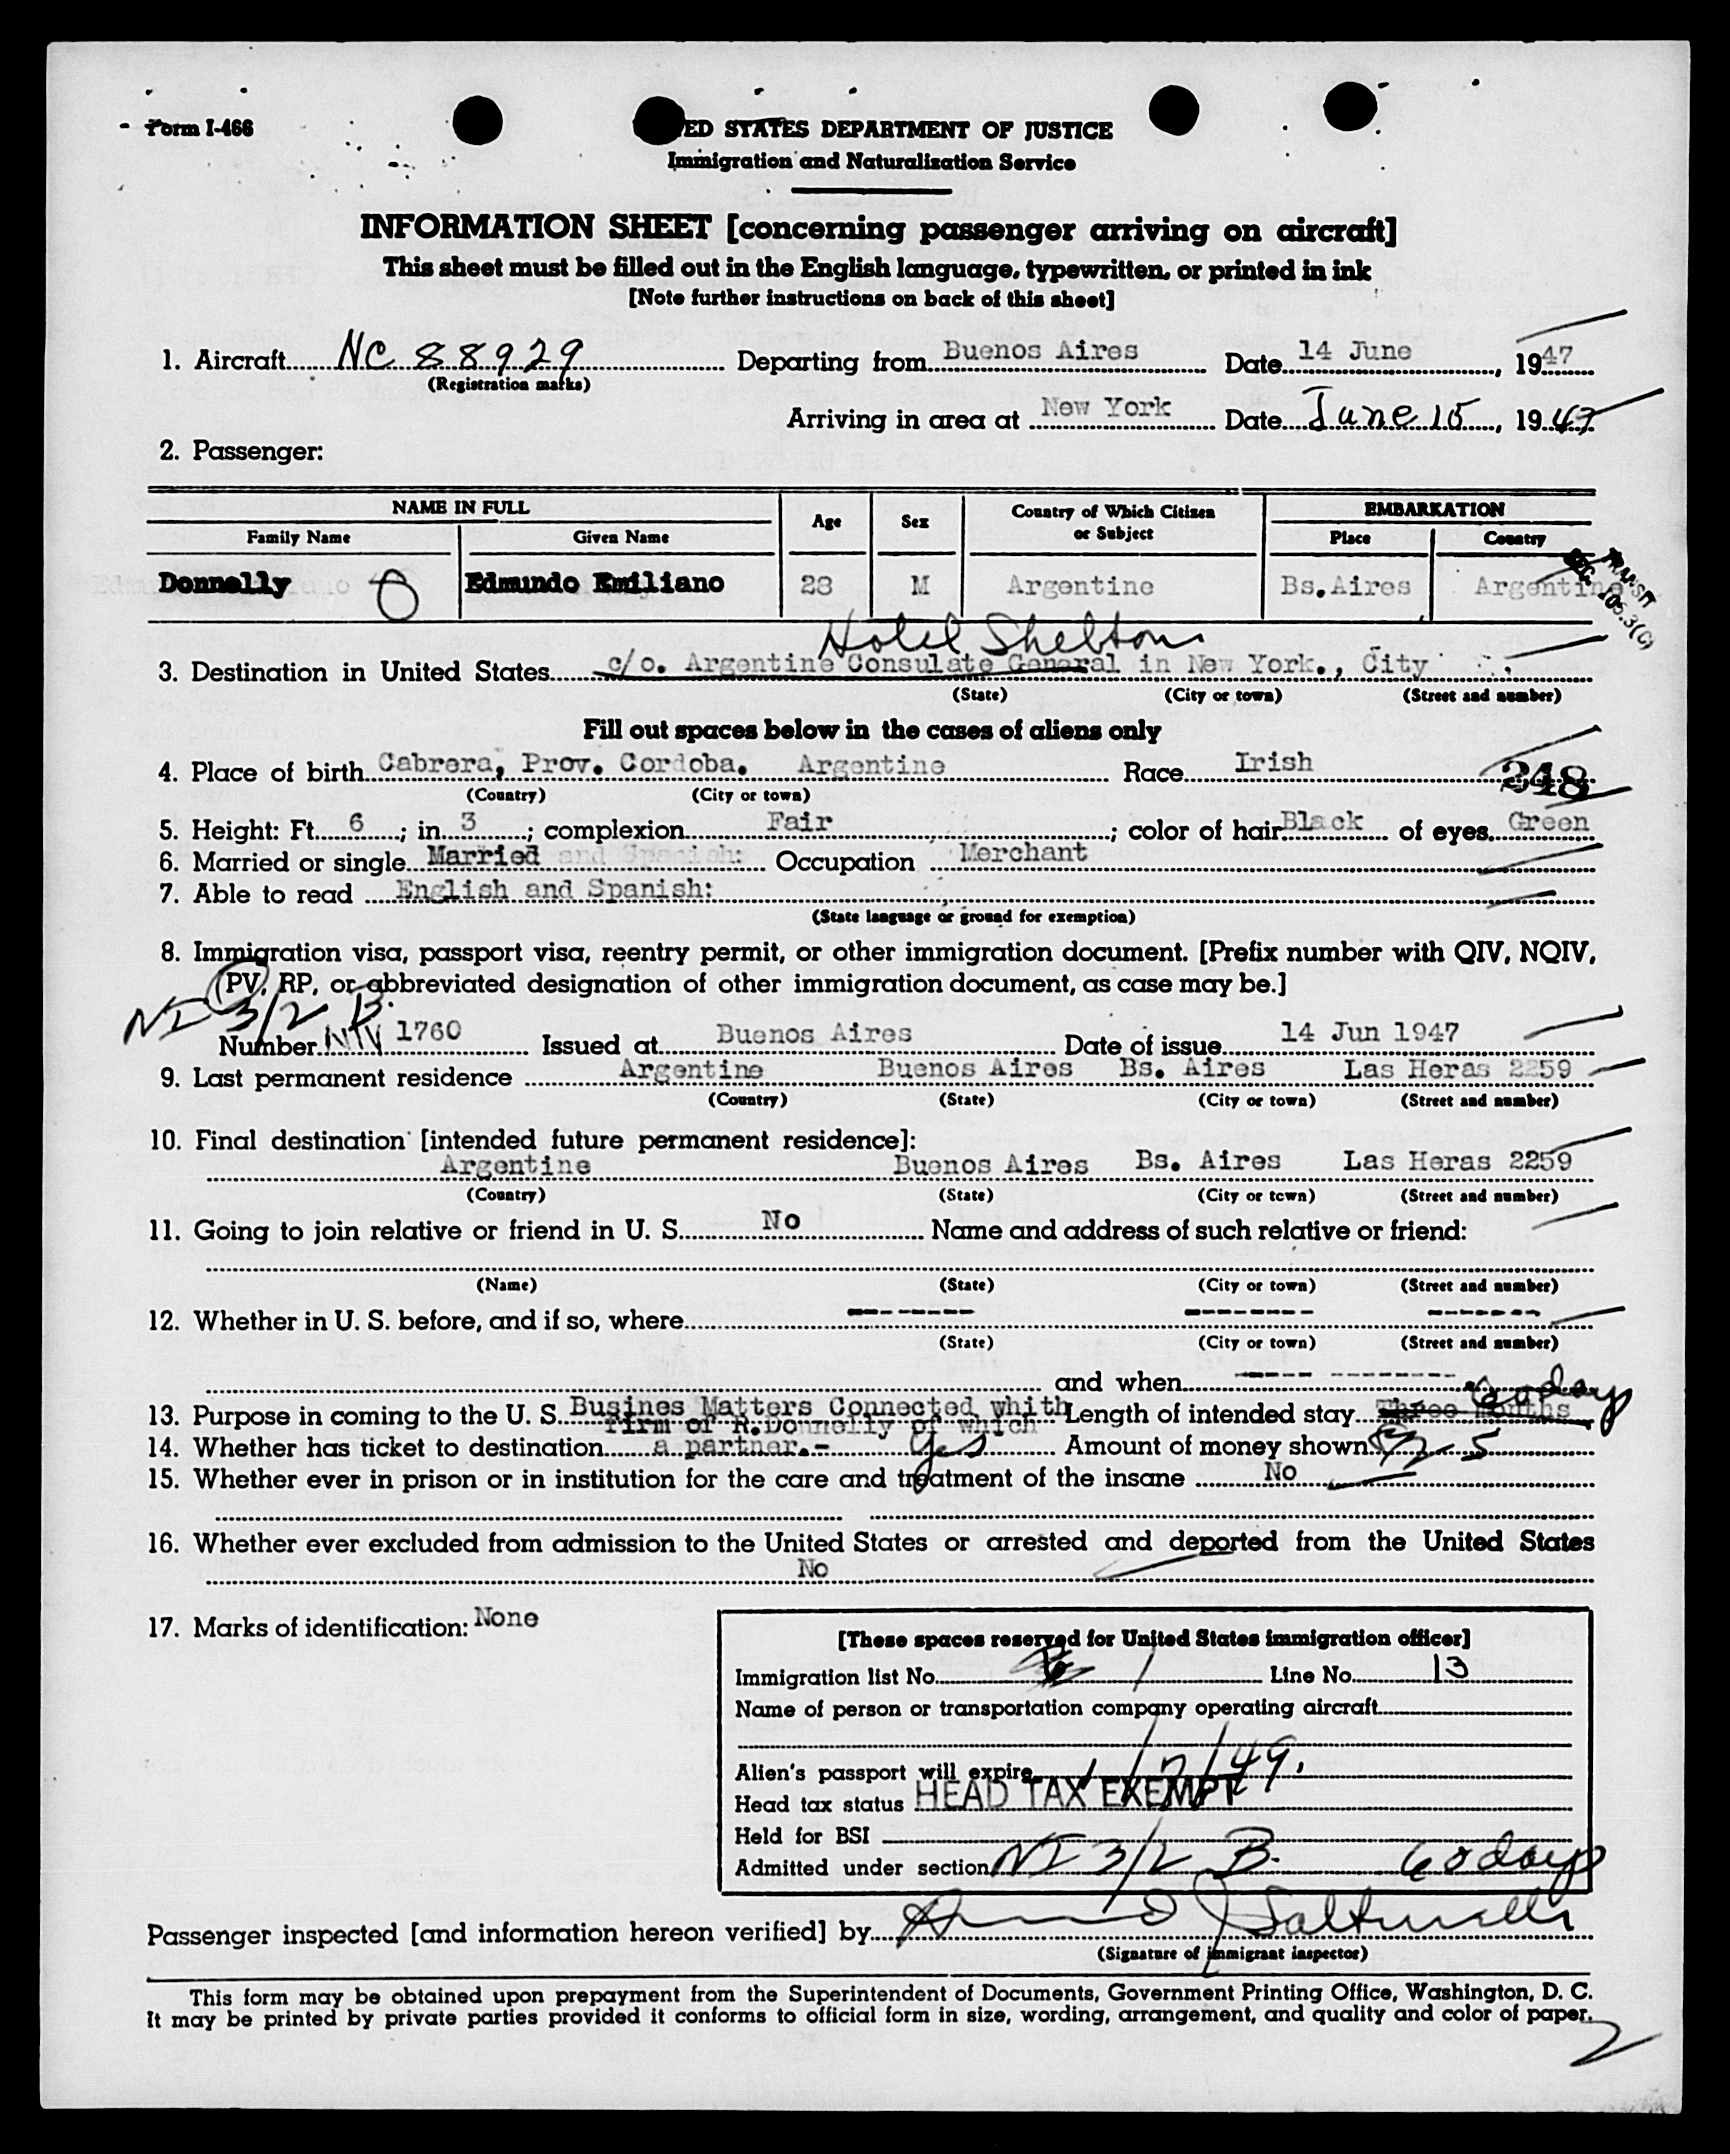 Form I-466
ED STATES DEPARTMENT OF JUSTICE
Immigration and Naturalization Service
INFORMATION SHEET [concerning passenger arriving on aircraft]
This sheet must be filled out in the English language, typewritten, or printed in ink
[Note further instructions on back of this sheet]
1. Aircraft NC 88929 Departing from Buenos Aires Date 14 June, 1947
(Registration marks)
Arriving in area at New York Date June 15, 1947
2. Passenger:
NAME IN FULL Age Sex Country of Which Citizen or Subject EMBARKATION
Family Name Given Name Place Country
Donnelly 8 Edmundo Emiliano 28 M Argentine Bs.Aires Argentine
TRANSIT
105.3(C)
Hotel Shelton
3. Destination in United States c/o. Argentine Consulate General in New York., City
(State) (City or town) (Street and number)
Fill out spaces below in the cases of aliens only
4. Place of birth Cabrera, Prov. Cordoba. Argentine Race Irish 248
(Country) (City or town)
5. Height: Ft. 6; in. 3; complexion Fair; color of hair Black of eyes Green
6. Married or single Married and Spanish: Occupation Merchant
7. Able to read English and Spanish:
(State language or ground for exemption)
8. Immigration visa, passport visa, reentry permit, or other immigration document. [Prefix number with QIV, NQIV,
PV, RP, or abbreviated designation of other immigration document, as case may be.]
NI 3/2 B.
Number 1760 Issued at Buenos Aires Date of issue 14 Jun 1947
9. Last permanent residence Argentine Buenos Aires Bs. Aires Las Heras 2259
(Country) (State) (City or town) (Street and number)
10. Final destination [intended future permanent residence]:
Argentine Buenos Aires Bs. Aires Las Heras 2259
(Country) (State) (City or town) (Street and number)
11. Going to join relative or friend in U. S. No Name and address of such relative or friend:
(Name) (State) (City or town) (Street and number)
12. Whether in U. S. before, and if so, where
(State) (City or town) (Street and number)
and when
60 days
13. Purpose in coming to the U. S. Busines Matters Connected whith Length of intended stay Three months
firm of R.Donnelly of which
14. Whether has ticket to destination a partner.- yes Amount of money shown
15. Whether ever in prison or in institution for the care and treatment of the insane No
16. Whether ever excluded from admission to the United States or arrested and deported from the United States
No
17. Marks of identification: None
[These spaces reserved for United States immigration officer]
Immigration list No. 1 Line No. 13
Name of person or transportation company operating aircraft
Alien's passport will expire 1/7/49.
Head tax status HEAD TAX EXEMPT
Held for BSI
Admitted under section NI 3/2 B. 60 days
Passenger inspected [and information hereon verified] by
(Signature of immigrant inspector)
This form may be obtained upon prepayment from the Superintendent of Documents, Government Printing Office, Washington, D. C.
It may be printed by private parties provided it conforms to official form in size, wording, arrangement, and quality and color of paper.
2